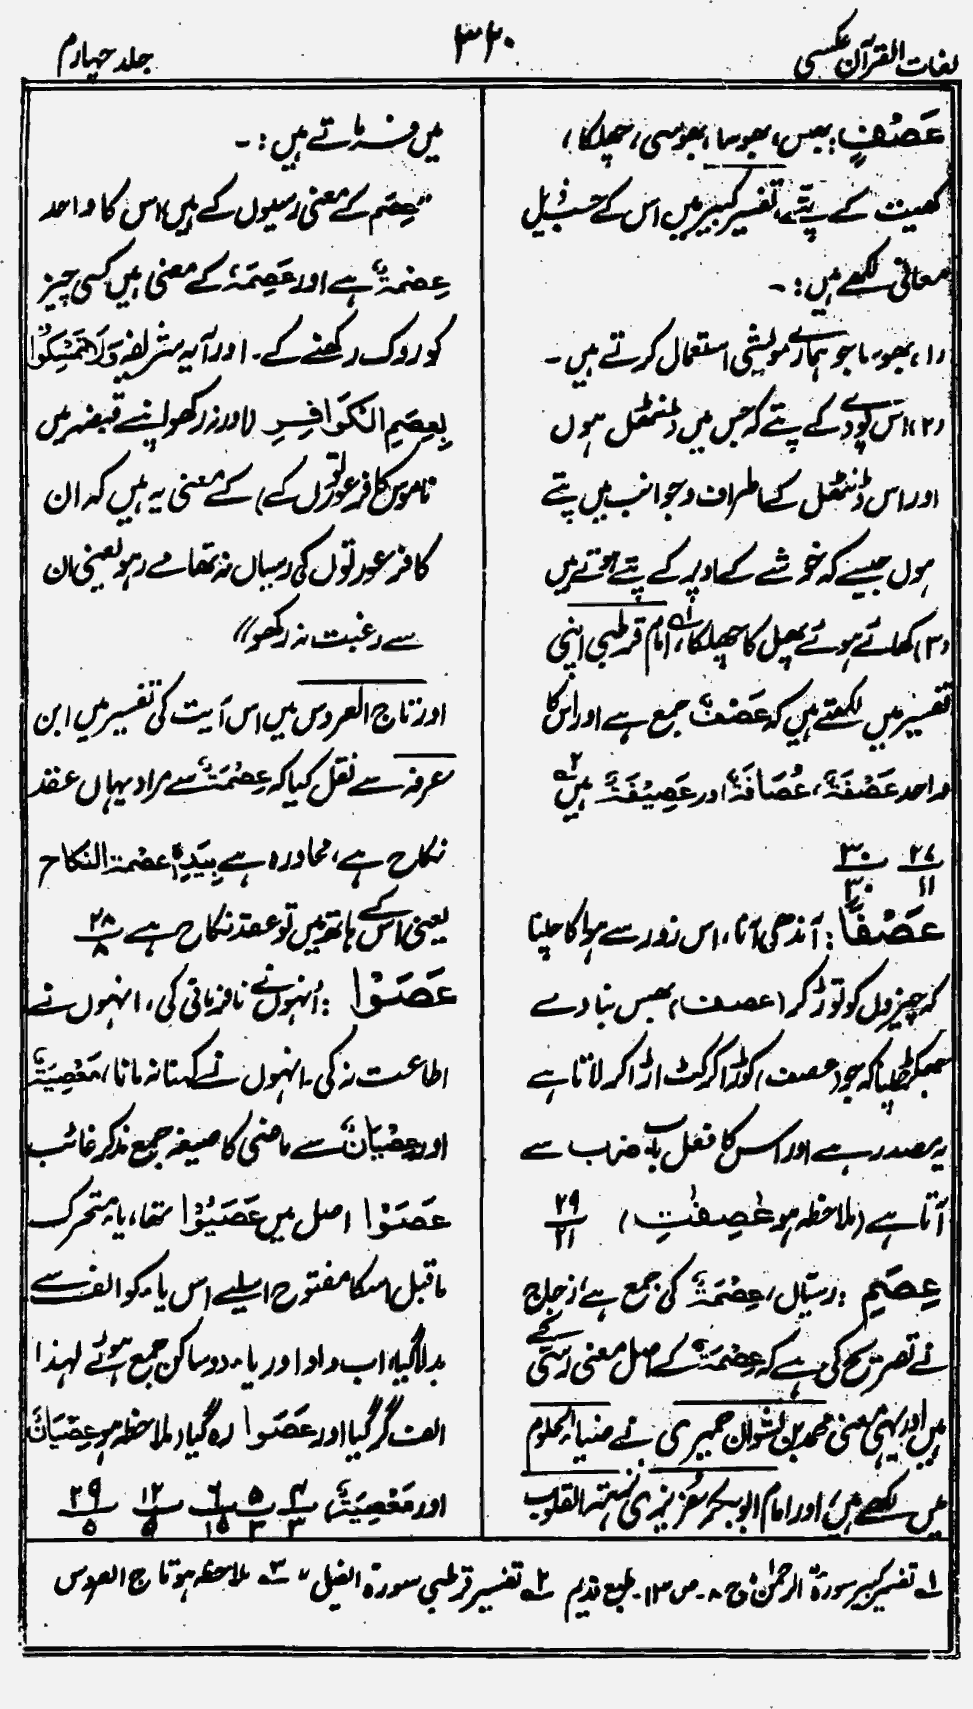 لغات القرآن عکسی
۳۲۰
جلد چہارم
عَصْفٍ: بھس، بھوسا، بھوسی، چھلکا،
کھیت کے پتے، تفسیر کبیر میں اس کے حسب ذیل
معانی لکھے ہیں: ۔
(۱) بھوسا جو ہمارے مویشی استعمال کرتے ہیں ۔
(۲) اس پودے کے پتے کہ جس میں ڈنٹھل ہوں
اور اس ڈنٹھل کے اطراف و جوانب میں پتے
ہوں جیسے کہ خوشے کے اوپر کے پتے ہوتے ہیں
(۳) کھائے ہوئے پھل کا چھلکا، ۱ے امام قرطبی اپنی
تفسیر میں لکھتے ہیں کہ عَصْفٌ جمع ہے اور اس کا
واحد عَصْفَۃٌ، عُصَافَۃٌ اور عَصِیْفَۃٌ ہیں ۲ے
۲۷/۱۱ ۳۰/۳۰
عَصْفًا: آندھی آنا، اس زور سے ہوا کا چلنا
کہ چیزوں کو توڑ کر (عصف) بھس بنا دے
جھکڑ چلنا کہ جو عصف، کوڑا کرکٹ اڑا کر لاتا ہے
یہ مصدر ہے اور اس کا فعل باب ضرب سے
آتا ہے (ملاحظہ ہو عٰصِفٰتِ) ۲۹/۲۱
عِصَمِ: رسیّاں، عِصْمَۃٌ کی جمع ہے، زجاج
نے تصریح کی ہے کہ عِصْمَۃٌ کے اصل معنی رسی کے
ہیں اور یہی معنی محمد بن نشوان حمیری نے ضیاء الحلوم
میں لکھے ہیں، اور امام ابو بکر عُزیزی نزہتہ القلوب
میں فرماتے ہیں: ۔
”عِصَم کے معنی رسیوں کے ہیں، اس کا واحد
عِصْمَۃٌ ہے اور عَصِمَۃٌ کے معنی ہیں کسی چیز
کو روک رکھنے کے۔ اور آیہ شریفہ وَلَا تُمْسِکُوْا
بِعِصَمِ الْکَوَافِرِ (اور نہ رکھو اپنے قبضہ میں
ناموس کافر عورتوں کے) کے معنی یہ ہیں کہ ان
کافر عورتوں کی رسیاں نہ تھامے رہو یعنی ان
سے رغبت نہ رکھو“
اور تاج العروس میں اس آیت کی تفسیر میں ابن
عرفہ سے نقل کیا کہ عِصْمَۃٌ سے مراد یہاں عقد
نکاح ہے، محاورہ ہے بِیَدِہٖ عصْمۃ النکاح
یعنی اس کے ہاتھ میں تو عقد نکاح ہے ۲۸/۸
عَصَوْا: اُنہوں نے نافرمانی کی، انہوں نے
اطاعت نہ کی۔ انہوں نے کہنا نہ مانا، مَعْصِیَۃٌ
اور عِصْیَانٌ سے ماضی کا صیغہ جمع مذکر غائب
عَصَوْا اصل میں عَصَیُوْا تھا، یاء متحرک
ماقبل اسکا مفتوح اسلیے اس یاء کو الف سے
بدلا گیا، اب واؤ اور یاء دو ساکن جمع ہوئے لہذا
الف گر گیا اور عَصَوا رہ گیا (ملاحظہ ہو عِصْیَانٌ
اور مَعْصِیَۃٌ) ۴/۳ ۵/۳ ۶/۱۵ ۱۲/۵ ۲۹/۵
۱ے تفسیر کبیر سورۃ الرحمٰن ج ۸۔ ص ۱۳۔ طبع قدیم ۲ے تفسیر قرطبی سورۃ الفیل، ۳ے ملاحظہ ہو تاج العروس